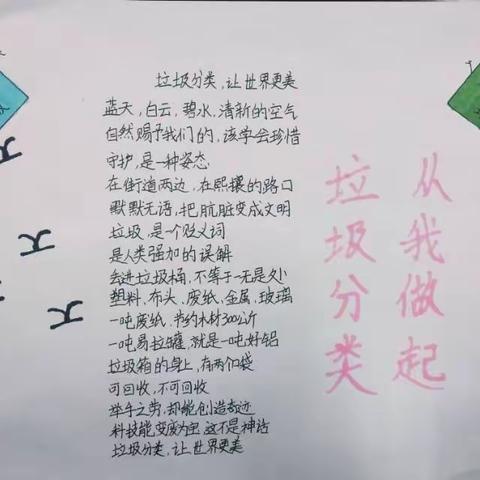 垃圾分类,让世界更美
蓝天,白云,碧水,清新的空气
自然赐予我们的,该学会珍惜
守护,是一种姿态
在街道两边,在熙攘的路口
默默无语,把肮脏变成文明
垃圾,是一个贬义词
是人类强加的误解
丢进垃圾桶,不等于一无是处
塑料,布头,废纸,金属,玻璃
一吨废纸,节约木材300公斤
一吨易拉罐,就是一吨好铝
垃圾箱的身上,有两个袋
可回收,不可回收
举手之劳,却能创造奇迹
科技能变废为宝,这不是神话
垃圾分类,让世界更美
从我做起
垃圾分类